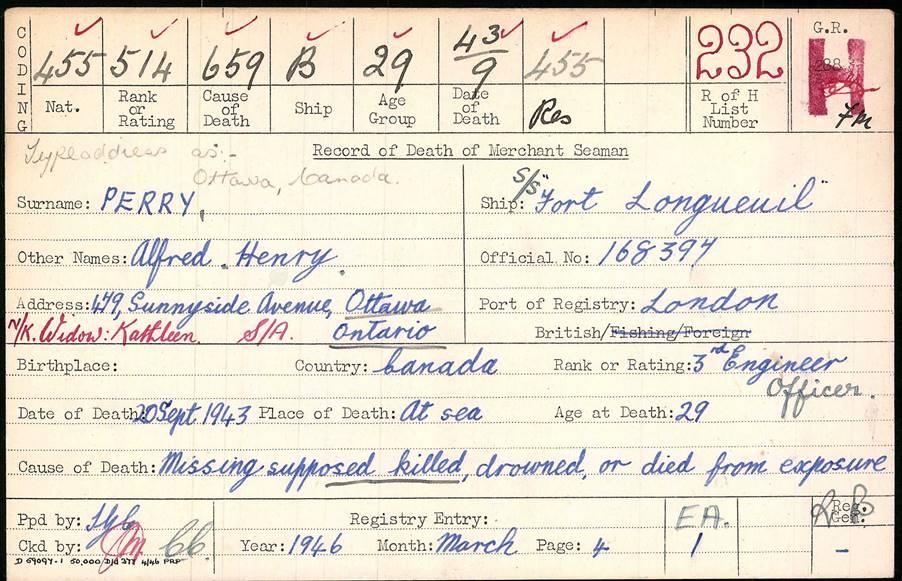 CODING
455 514 659 B 29 43/9 455 232 G.R.
288
H
7m
Nat. Rank or Rating Cause of Death Ship Age Group Date of Death Res R of H List Number
Type address as:-
Ottawa, Canada.
Record of Death of Merchant Seaman
Surname: PERRY,
Ship: S/S "Fort Longueuil"
Other Names: Alfred Henry.
Official No: 168397
Address: 479, Sunnyside Avenue, Ottawa
Ontario
N/K. Widow: Kathleen. S/A.
Port of Registry: London
British/Fishing/Foreign
Birthplace: Country: Canada Rank or Rating: 3rd Engineer
Officer.
Date of Death: 20 Sept 1943 Place of Death: At sea Age at Death: 29
Cause of Death: Missing supposed killed, drowned, or died from exposure
Ppd by: Registry Entry: EA. Reg. Gen.
Ckd by: Year: 1946 Month: March Page: 4 1 -
50,000 D/d 377 4/46 PRP